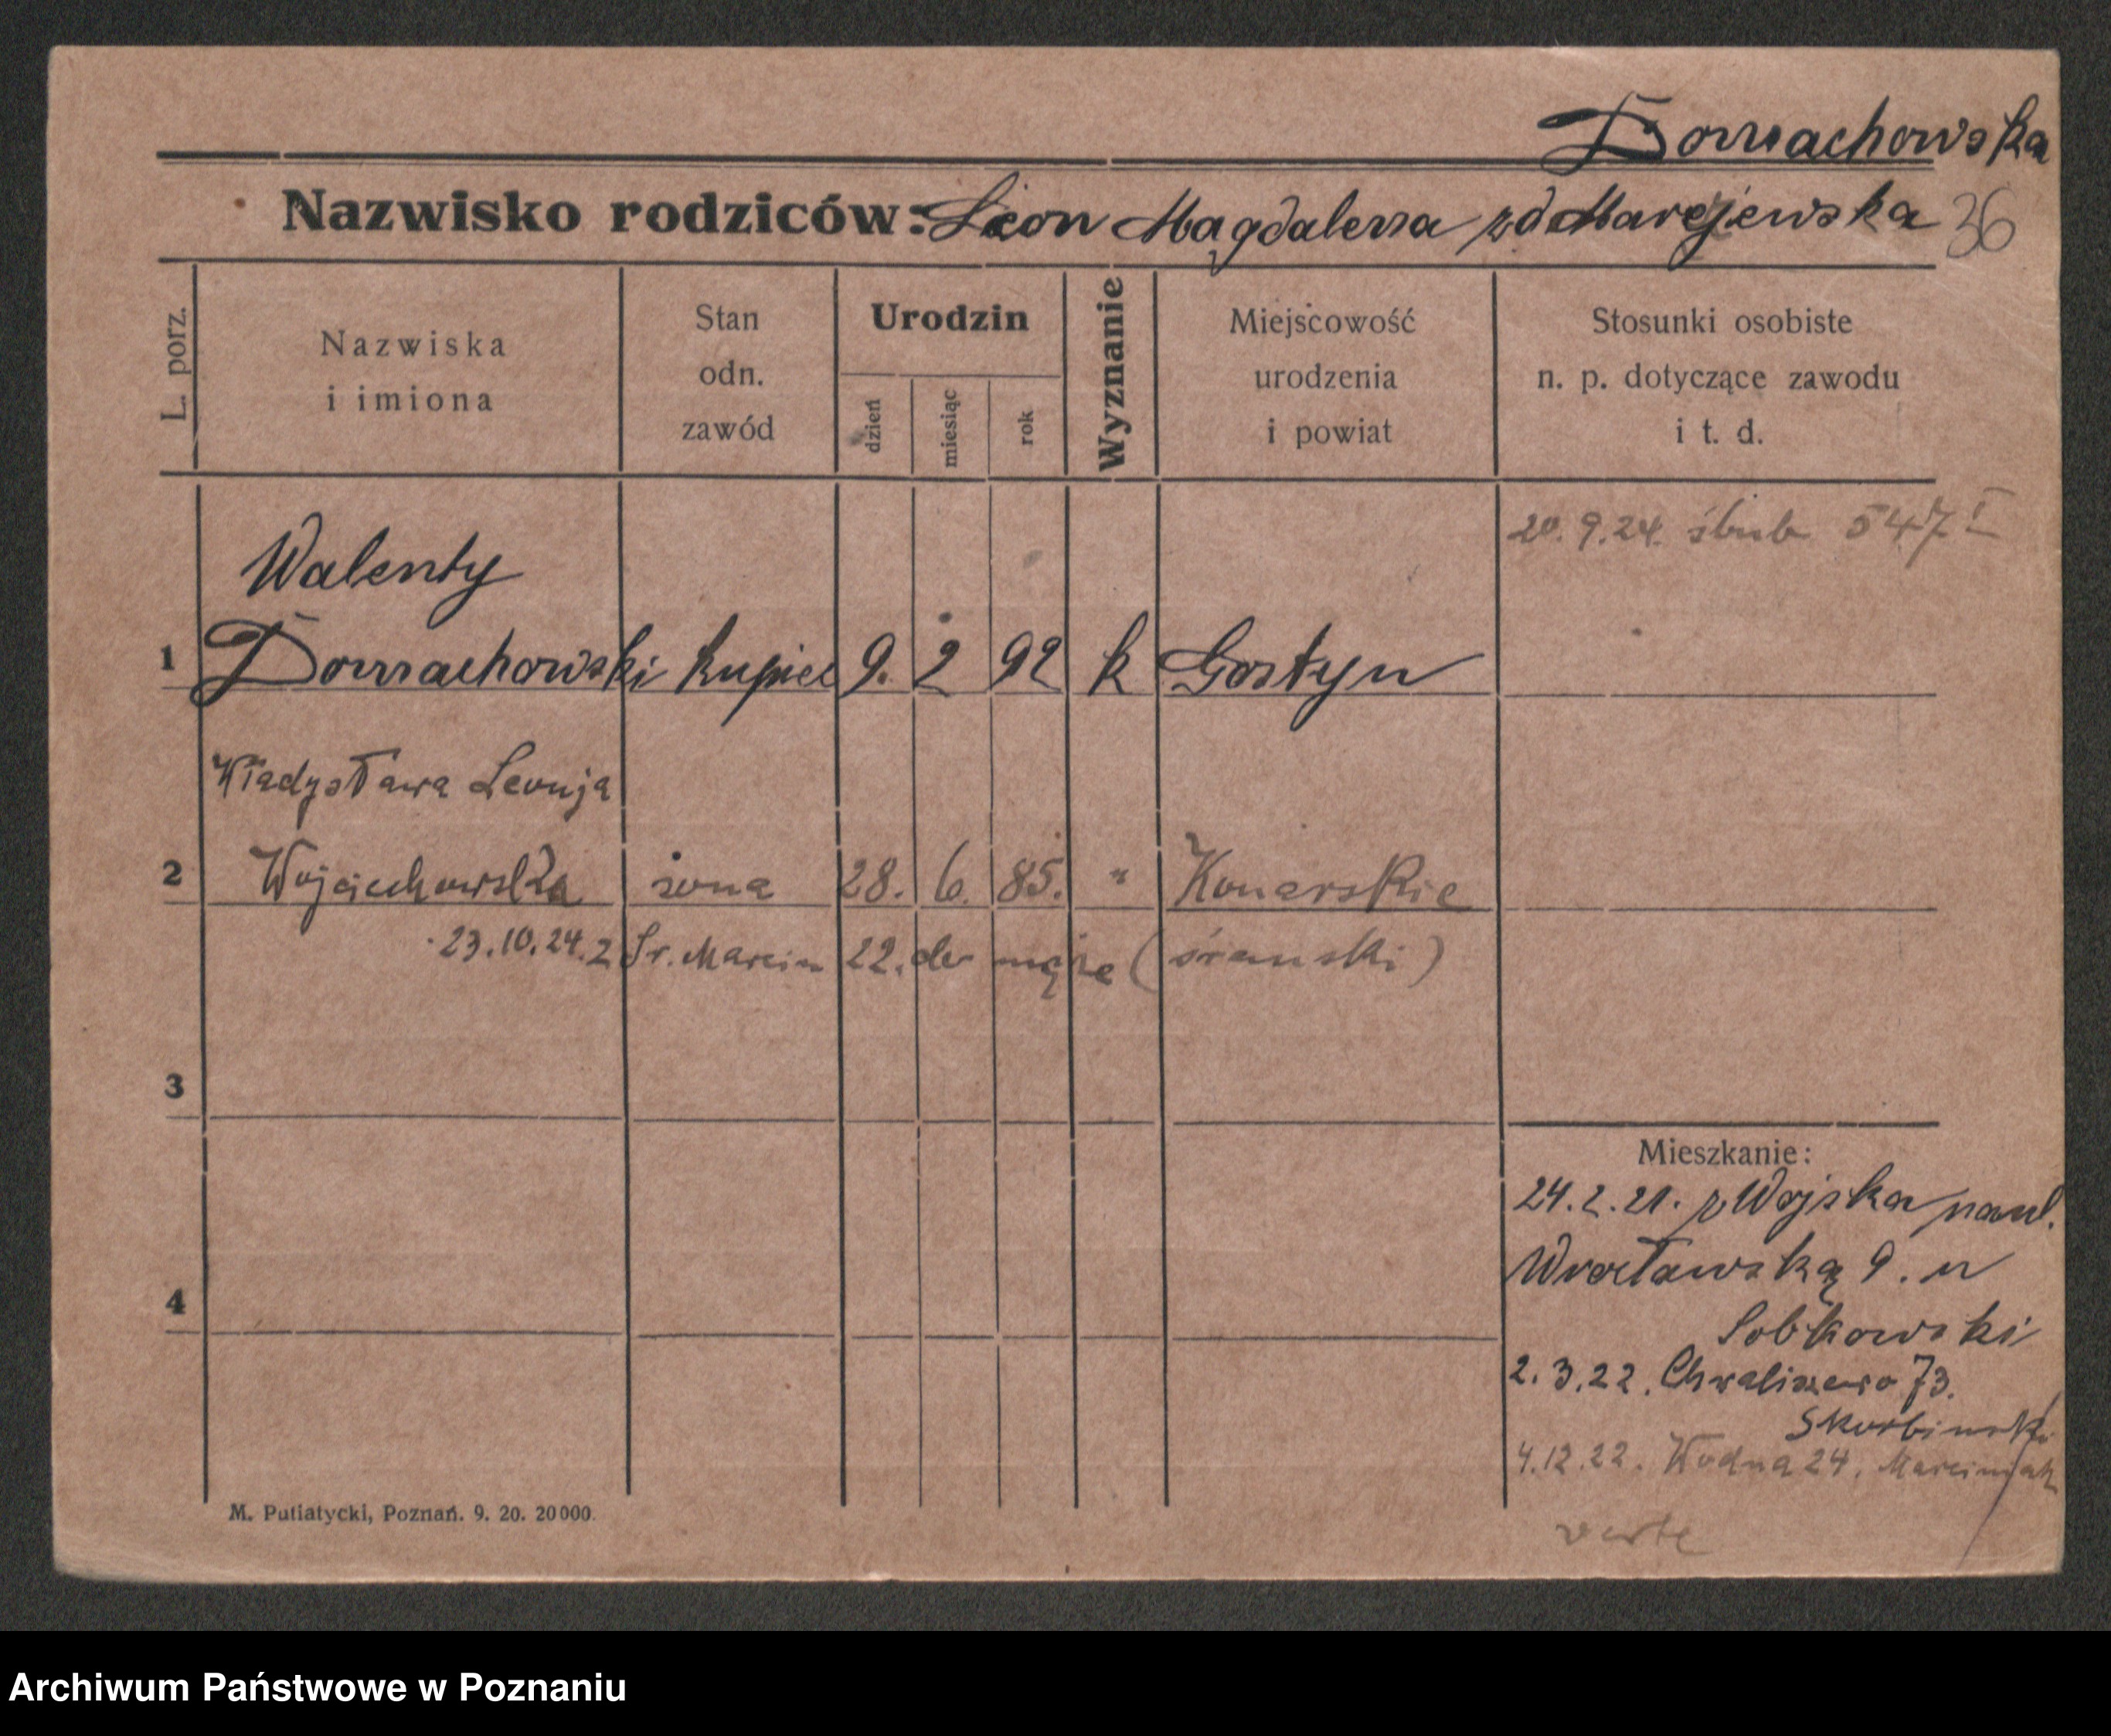 Domachowska
Nazwisko rodziców: Leon Magdalena zd Marejewska 36
L. porz.
Nazwiska
i imiona
Stan
odn.
zawód
Urodzin
dzień
miesiąc
rok
Wyznanie
Miejscowość
urodzenia
i powiat
Stosunki osobiste
n. p. dotyczące zawodu
i t. d.
20. 9. 24. ślub 547 I
Walenty
1 Domachowski kupiec 9. 2 92 k Gostyn
Władysława Leonja
2 Wojciechowska żona 28. 6. 85. " Konarskie
23.10.24. z Św. Marcin 22. do męża (śremski)
3
4
Mieszkanie:
24. 2. 21. z Wojska na ul.
Wrocławską 9. u
Sobkowski
2. 3. 22. Chwaliszewo 73.
Skorbinski
4.12.22. Wodna 24. Marciniak
verte
M. Putiatycki, Poznań. 9. 20. 20000.
Archiwum Państwowe w Poznaniu